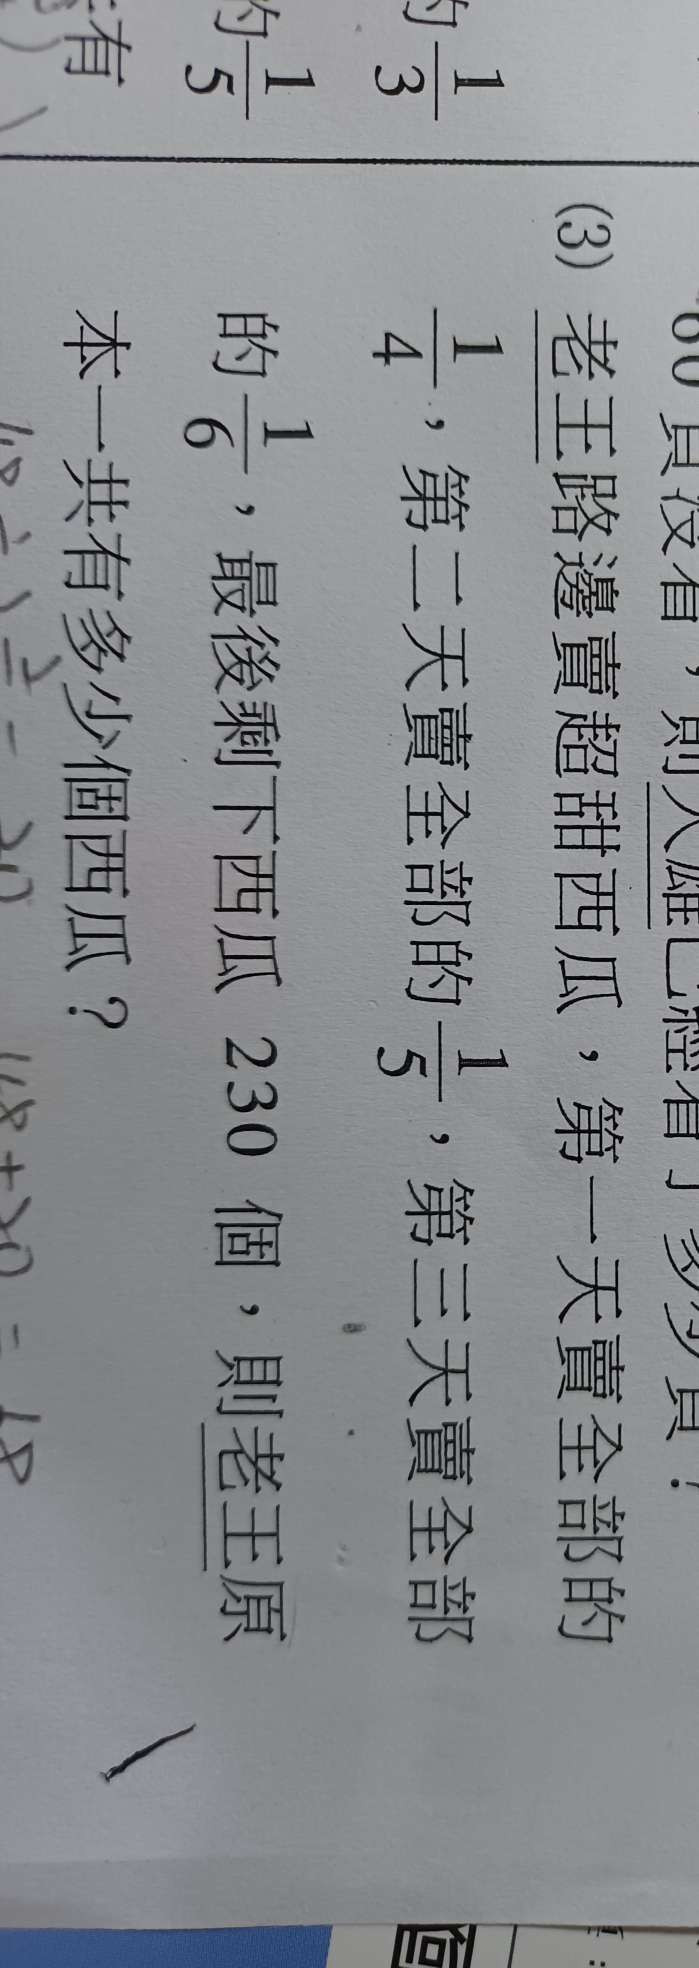 60 頁沒看，則大雄已經看了多少頁？
(3) 老王路邊賣超甜西瓜，第一天賣全部的
1/4，第二天賣全部的 1/5，第三天賣全部
的 1/6，最後剩下西瓜 230 個，則老王原
本一共有多少個西瓜？
的 1/3
的 1/5
有